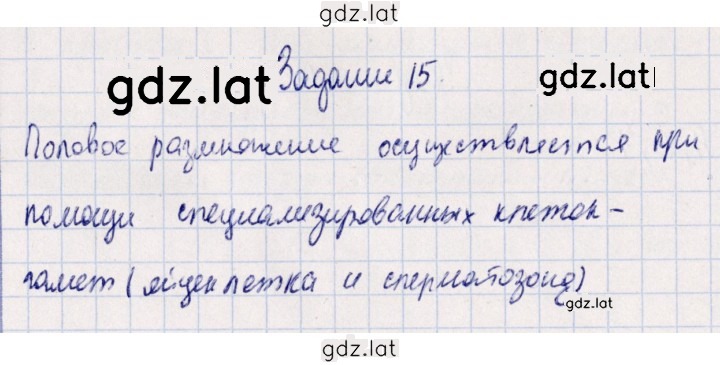 gdz.lat
gdz.lat Задание 15. gdz.lat
Половое размножение осуществляется при
помощи специализированных клеток -
гамет (яйцеклетка и сперматозоид)
gdz.lat
gdz.lat